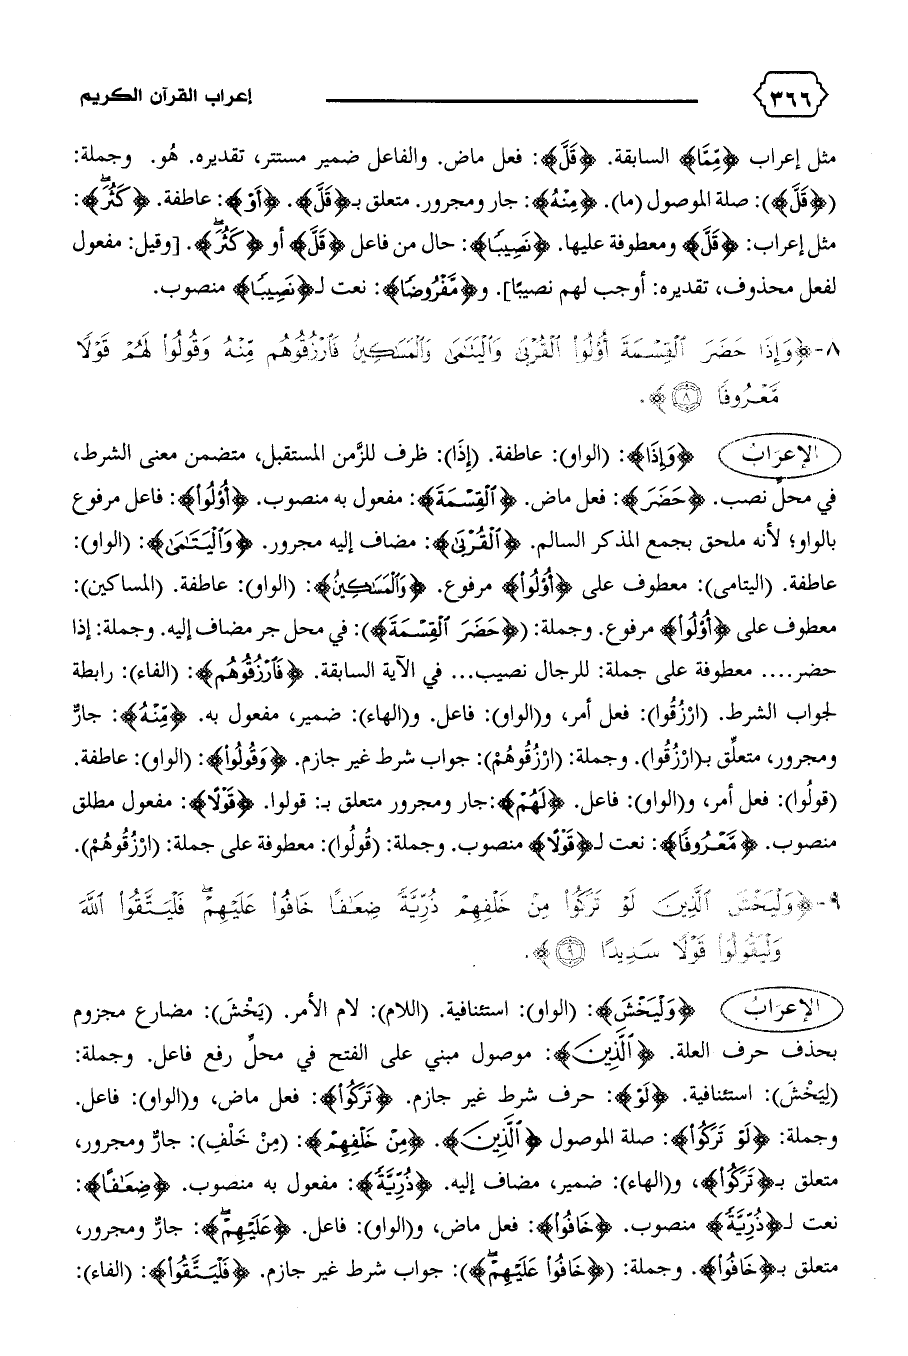 ٣٦٦ إعراب القرآن الكريم
مثل إعراب ﴿مِّمَّا﴾ السابقة. ﴿قَلَّ﴾: فعل ماض. والفاعل ضمير مستتر، تقديره. هُو. وجملة:
(﴿قَلَّ﴾): صلة الموصول (ما). ﴿مِنْهُ﴾: جار ومجرور. متعلق بـ﴿قَلَّ﴾. ﴿أَوْ﴾: عاطفة. ﴿كَثُرَۚ﴾:
مثل إعراب: ﴿قَلَّ﴾ ومعطوفة عليها. ﴿نَصِيبًا﴾: حال من فاعل ﴿قَلَّ﴾ أو ﴿كَثُرَۚ﴾. [وقيل: مفعول
لفعل محذوف، تقديره: أوجب لهم نصيبًا]. و﴿مَّفْرُوضًا﴾: نعت لـ﴿نَصِيبًا﴾ منصوب.
٨- ﴿وَإِذَا حَضَرَ ٱلْقِسْمَةَ أُوْلُواْ ٱلْقُرْبَىٰ وَٱلْيَتَٰمَىٰ وَٱلْمَسَٰكِينُ فَٱرْزُقُوهُم مِّنْهُ وَقُولُواْ لَهُمْ قَوْلًا
مَّعْرُوفًا ٨﴾.
الإعراب ﴿وَإِذَا﴾: (الواو): عاطفة. (إِذَا): ظرف للزَّمن المستقبل، متضمن معنى الشرط،
في محلِّ نصب. ﴿حَضَرَ﴾: فعل ماض. ﴿ٱلْقِسْمَةَ﴾: مفعول به منصوب. ﴿أُوْلُواْ﴾: فاعل مرفوع
بالواو؛ لأنه ملحق بجمع المذكر السالم. ﴿ٱلْقُرْبَىٰ﴾: مضاف إليه مجرور. ﴿وَٱلْيَتَٰمَىٰ﴾: (الواو):
عاطفة. (اليتامى): معطوف على ﴿أُوْلُواْ﴾ مرفوع. ﴿وَٱلْمَسَٰكِينُ﴾: (الواو): عاطفة. (المساكين):
معطوف على ﴿أُوْلُواْ﴾ مرفوع. وجملة: (﴿حَضَرَ ٱلْقِسْمَةَ﴾): في محل جر مضاف إليه. وجملة: إذا
حضر.... معطوفة على جملة: للرجال نصيب... في الآية السابقة. ﴿فَٱرْزُقُوهُم﴾: (الفاء): رابطة
لجواب الشرط. (ارْزُقُوا): فعل أمر، و(الواو): فاعل. و(الهاء): ضمير، مفعول به. ﴿مِّنْهُ﴾: جارٌّ
ومجرور، متعلِّق بـ(ارْزُقُوا). وجملة: (ارْزُقُوهُمْ): جواب شرط غير جازم. ﴿وَقُولُواْ﴾: (الواو): عاطفة.
(قولُوا): فعل أمر، و(الواو): فاعل. ﴿لَهُمْ﴾:جار ومجرور متعلق بـ: قولوا. ﴿قَوْلًا﴾: مفعول مطلق
منصوب. ﴿مَّعْرُوفًا﴾: نعت لـ﴿قَوْلًا﴾ منصوب. وجملة: (قُولُوا): معطوفة على جملة: (ارْزُقُوهُمْ).
٩- ﴿وَلْيَخْشَ ٱلَّذِينَ لَوْ تَرَكُواْ مِنْ خَلْفِهِمْ ذُرِّيَّةً ضِعَٰفًا خَافُواْ عَلَيْهِمْۖ فَلْيَتَّقُواْ ٱللَّهَ
وَلْيَقُولُواْ قَوْلًا سَدِيدًا ٩﴾.
الإعراب ﴿وَلْيَخْشَ﴾: (الواو): استئنافية. (اللام): لام الأمر. (يَخْشَ): مضارع مجزوم
بحذف حرف العلة. ﴿ٱلَّذِينَ﴾: موصول مبني على الفتح في محلِّ رفع فاعل. وجملة:
(لِيَخْشَ): استئنافية. ﴿لَوْ﴾: حرف شرط غير جازم. ﴿تَرَكُواْ﴾: فعل ماض، و(الواو): فاعل.
وجملة: ﴿لَوْ تَرَكُواْ﴾: صلة الموصول ﴿ٱلَّذِينَ﴾. ﴿مِنْ خَلْفِهِمْ﴾: (مِنْ خَلْفِ): جارٌّ ومجرور،
متعلق بـ﴿تَرَكُواْ﴾، و(الهاء): ضمير، مضاف إليه. ﴿ذُرِّيَّةً﴾: مفعول به منصوب. ﴿ضِعَٰفًا﴾:
نعت لـ﴿ذُرِّيَّةً﴾ منصوب. ﴿خَافُواْ﴾: فعل ماض، و(الواو): فاعل. ﴿عَلَيْهِمْۖ﴾: جارٌّ ومجرور،
متعلق بـ﴿خَافُواْ﴾. وجملة: (﴿خَافُواْ عَلَيْهِمْۖ﴾): جواب شرط غير جازم. ﴿فَلْيَتَّقُواْ﴾: (الفاء):